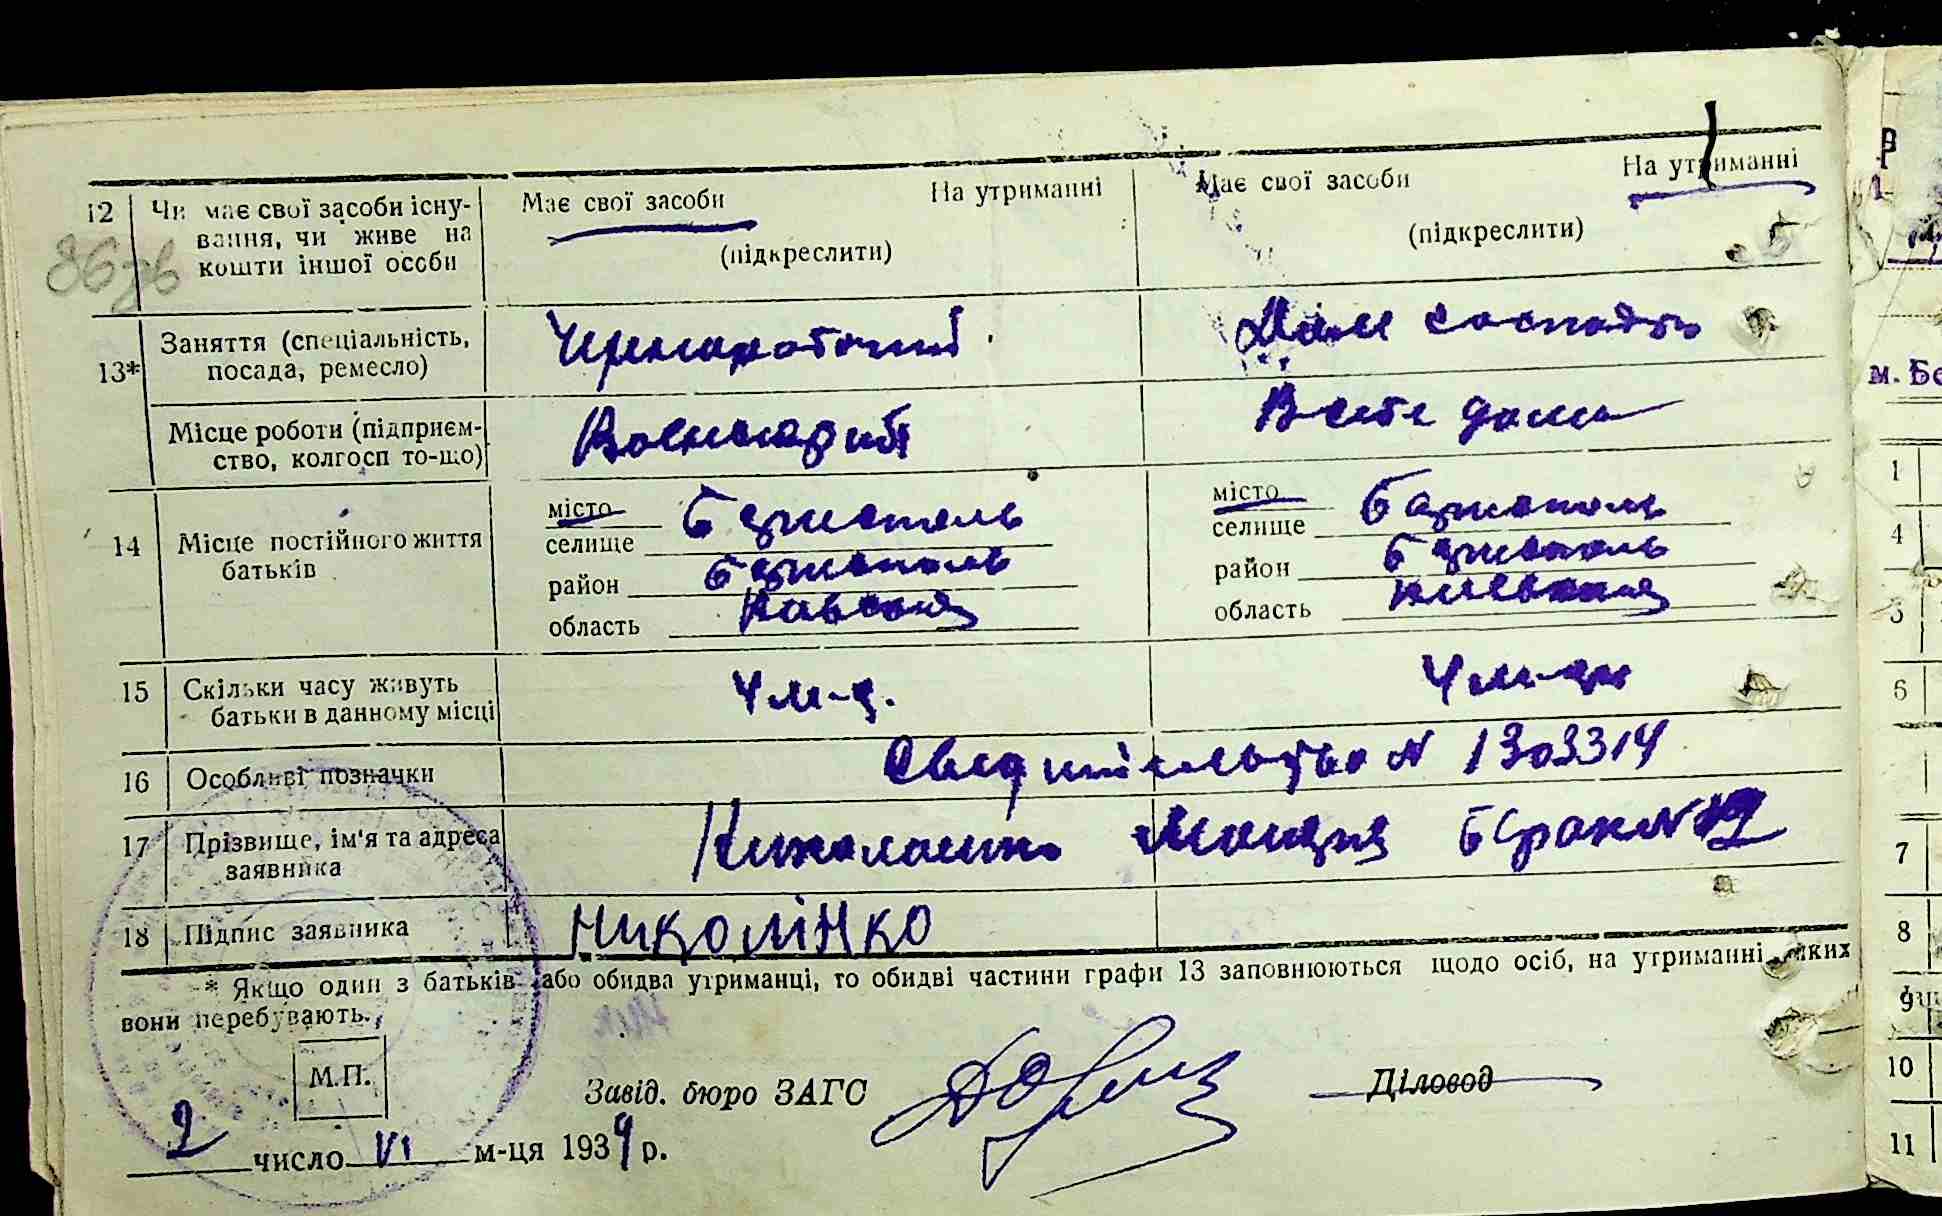 12 Чи має свої засоби існу-
вання, чи живе на
кошти іншої особи
Має свої засоби На утриманні
(підкреслити)
Має свої засоби На утриманні
(підкреслити)
86зв
13* Заняття (спеціальність,
посада, ремесло)
Чернароботчий
Дом господар
Місце роботи (підприєм-
ство, колгосп то-що)
Воєнторг
Веде дома
14 Місце постійного життя
батьків
місто
селище Бориспіль
район Бориспіль
область Київская
місто
селище Бориспіль
район Бориспіль
область Київская
15 Скільки часу живуть
батьки в данному місці
4 м-ц.
4 м-ци
16 Особливі позначки
Свідительство N 1303314
17 Прізвище, ім'я та адреса
заявника
Николаенко Мария
18 Підпис заявника
НИКОЛІНКО
* Якщо один з батьків або обидва утриманці, то обидві частини графи 13 заповнюються щодо осіб, на утриманні яких
вони перебувають.
М.П.
Завід. бюро ЗАГС
Діловод
2 число VI м-ця 1939 р.
Р
м. Бе
1
4
5
6
7
8
9
10
11